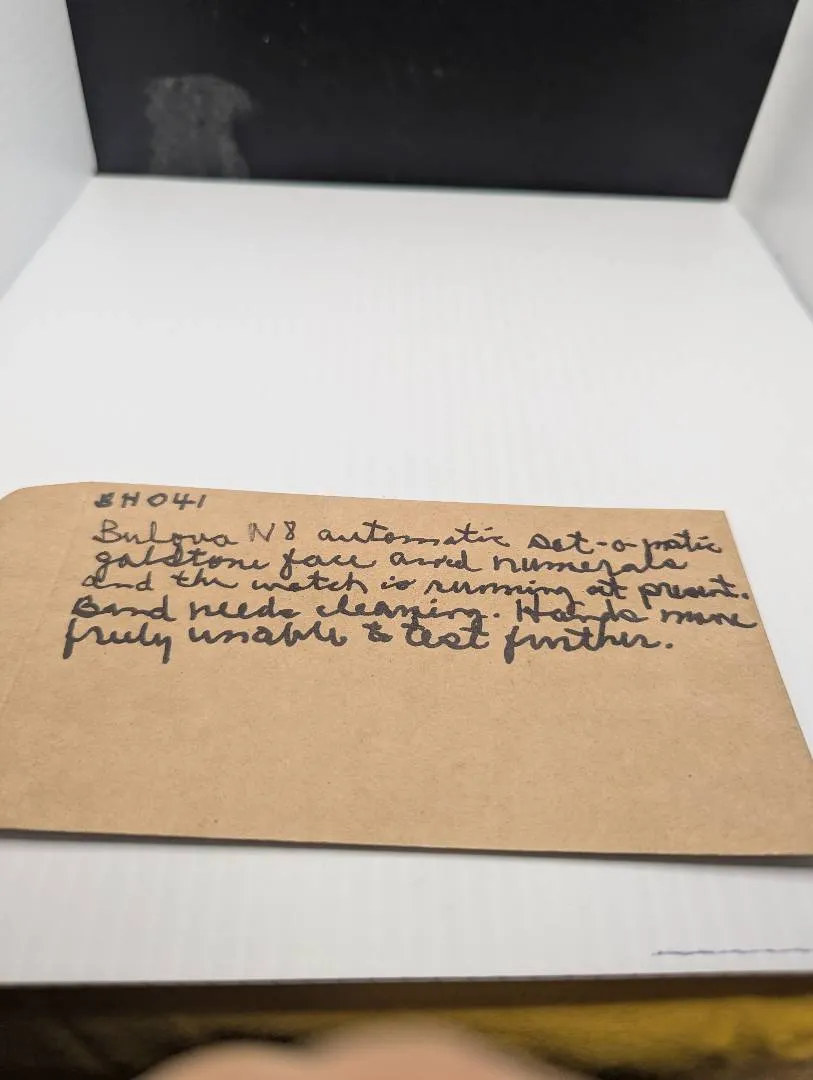 EH041
Bulova N8 automatic set-o-matic
galdstone face and numerals
and the watch is running at present.
Band needs cleaning. Hands move
freely unable to test further.